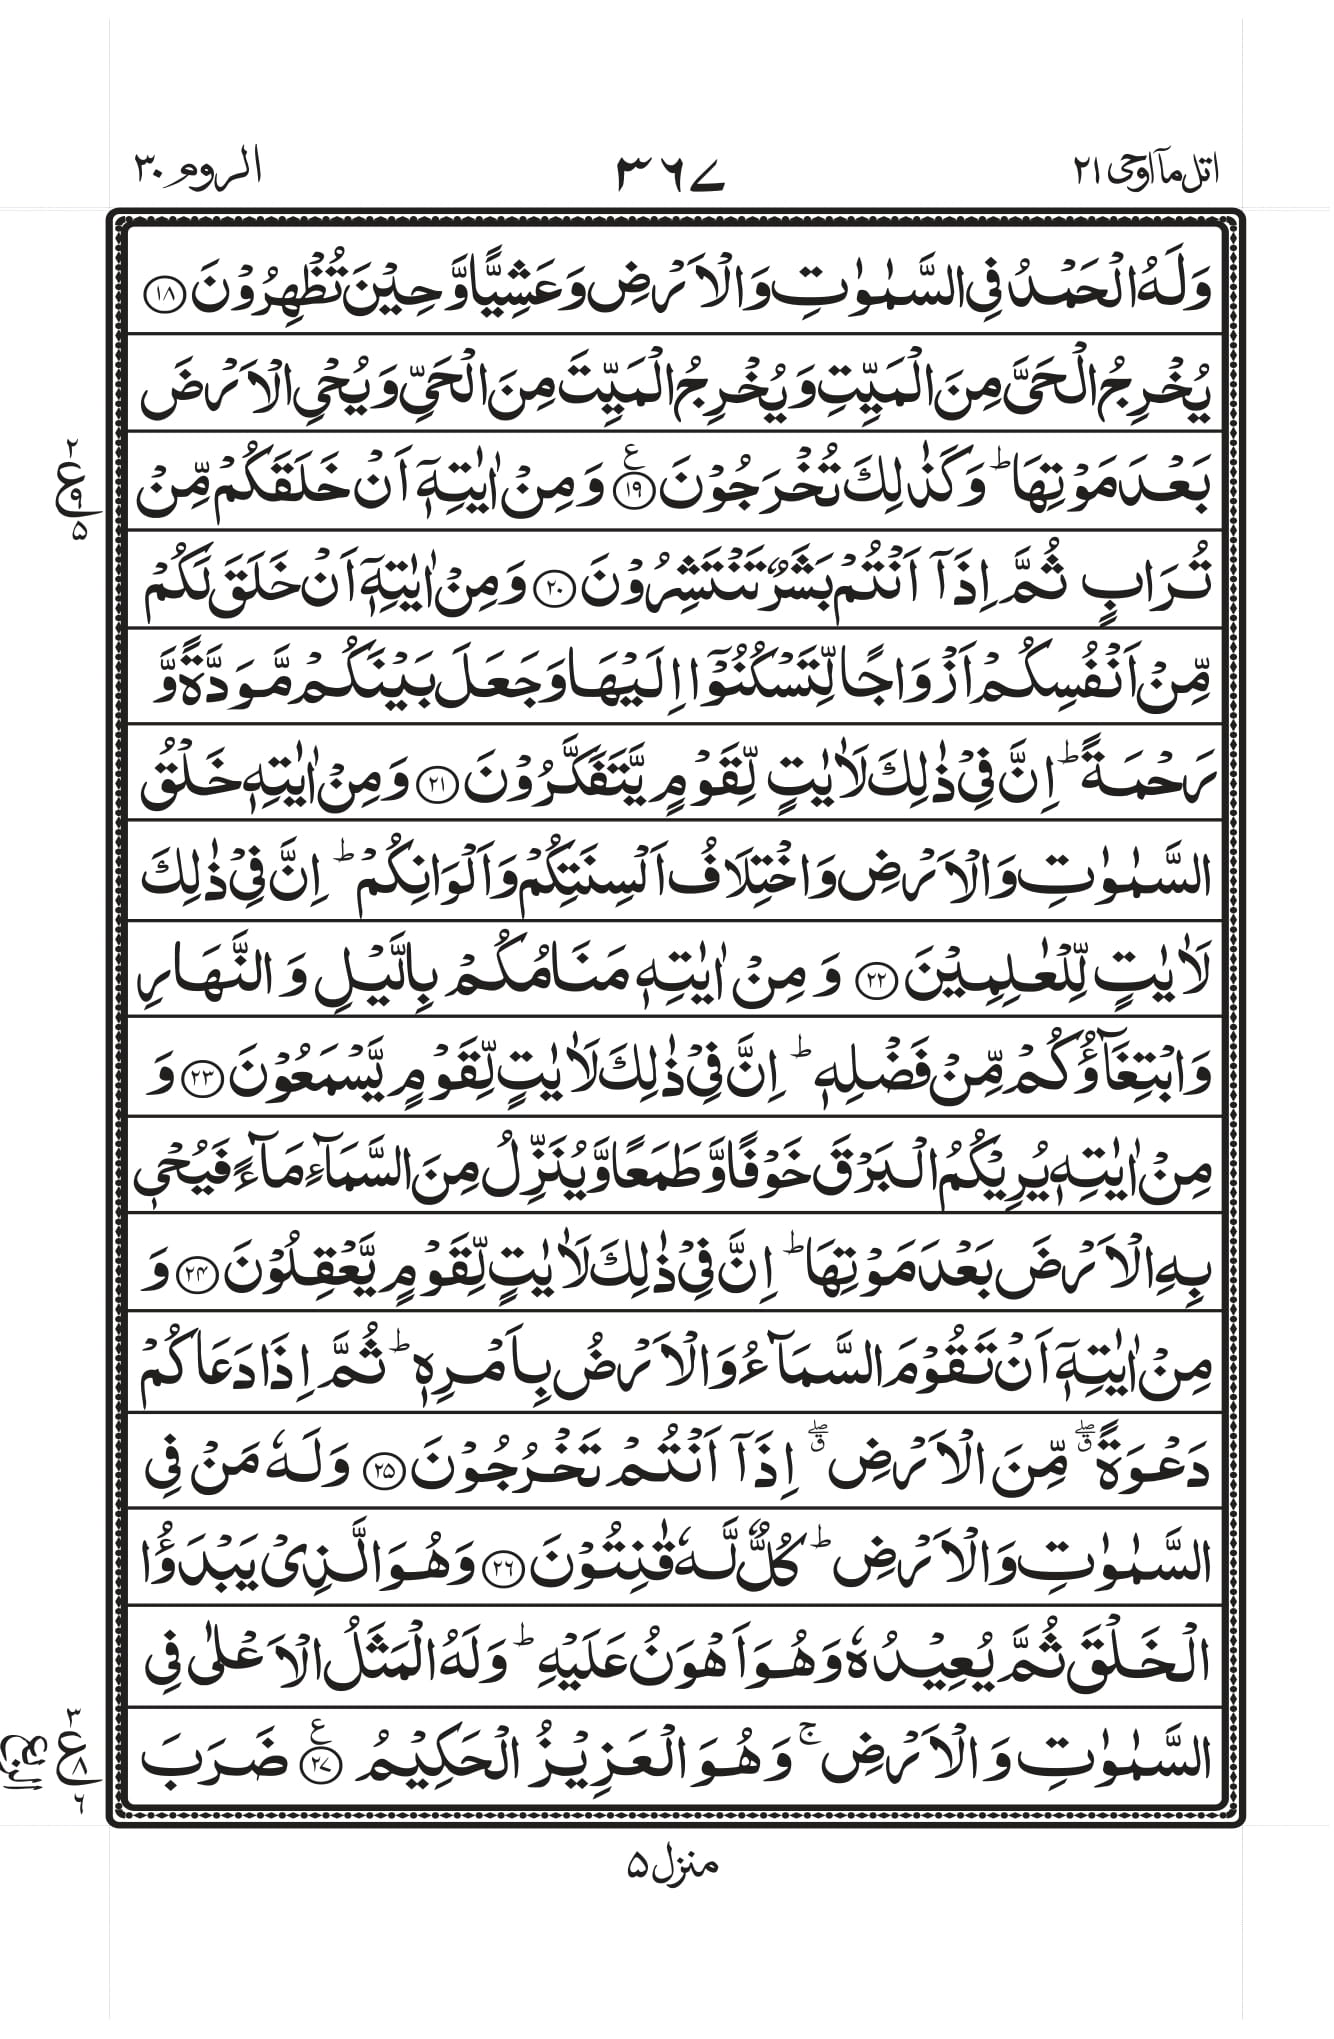 اتل مآ اوحی ۲۱
۳۶۷
الروم ۳۰
وَلَهُ الۡحَمۡدُ فِی السَّمٰوٰتِ وَالۡاَرۡضِ وَعَشِیًّا وَّحِیۡنَ تُظۡهِرُوۡنَ ﴿۱۸﴾
یُخۡرِجُ الۡحَیَّ مِنَ الۡمَیِّتِ وَیُخۡرِجُ الۡمَیِّتَ مِنَ الۡحَیِّ وَیُحۡیِ الۡاَرۡضَ
بَعۡدَ مَوۡتِهَا ؕ وَكَذٰلِكَ تُخۡرَجُوۡنَ ﴿۱۹﴾ ع وَمِنۡ اٰیٰتِهٖۤ اَنۡ خَلَقَكُمۡ مِّنۡ
۲
ع
۹
۵
تُرَابٍ ثُمَّ اِذَاۤ اَنۡتُمۡ بَشَرٌ تَنۡتَشِرُوۡنَ ﴿۲۰﴾ وَمِنۡ اٰیٰتِهٖۤ اَنۡ خَلَقَ لَكُمۡ
مِّنۡ اَنۡفُسِكُمۡ اَزۡوَاجًا لِّتَسۡكُنُوۡۤا اِلَیۡهَا وَجَعَلَ بَیۡنَكُمۡ مَّوَدَّةً وَّ
رَحۡمَةً ؕ اِنَّ فِیۡ ذٰلِكَ لَاٰیٰتٍ لِّقَوۡمٍ یَّتَفَكَّرُوۡنَ ﴿۲۱﴾ وَمِنۡ اٰیٰتِهٖ خَلۡقُ
السَّمٰوٰتِ وَالۡاَرۡضِ وَاخۡتِلَافُ اَلۡسِنَتِكُمۡ وَاَلۡوَانِكُمۡ ؕ اِنَّ فِیۡ ذٰلِكَ
لَاٰیٰتٍ لِّلۡعٰلِمِیۡنَ ﴿۲۲﴾ وَمِنۡ اٰیٰتِهٖ مَنَامُكُمۡ بِالَّیۡلِ وَالنَّهَارِ
وَابۡتِغَآؤُكُمۡ مِّنۡ فَضۡلِهٖ ؕ اِنَّ فِیۡ ذٰلِكَ لَاٰیٰتٍ لِّقَوۡمٍ یَّسۡمَعُوۡنَ ﴿۲۳﴾ وَ
مِنۡ اٰیٰتِهٖ یُرِیۡكُمُ الۡبَرۡقَ خَوۡفًا وَّطَمَعًا وَّیُنَزِّلُ مِنَ السَّمَآءِ مَآءً فَیُحۡیٖ
بِهِ الۡاَرۡضَ بَعۡدَ مَوۡتِهَا ؕ اِنَّ فِیۡ ذٰلِكَ لَاٰیٰتٍ لِّقَوۡمٍ یَّعۡقِلُوۡنَ ﴿۲۴﴾ وَ
مِنۡ اٰیٰتِهٖۤ اَنۡ تَقُوۡمَ السَّمَآءُ وَالۡاَرۡضُ بِاَمۡرِهٖ ؕ ثُمَّ اِذَا دَعَاكُمۡ
دَعۡوَةً ۖق مِّنَ الۡاَرۡضِ ۖق اِذَاۤ اَنۡتُمۡ تَخۡرُجُوۡنَ ﴿۲۵﴾ وَلَهٗ مَنۡ فِی
السَّمٰوٰتِ وَالۡاَرۡضِ ؕ كُلٌّ لَّهٗ قٰنِتُوۡنَ ﴿۲۶﴾ وَهُوَ الَّذِیۡ یَبۡدَؤُا
الۡخَلۡقَ ثُمَّ یُعِیۡدُهٗ وَهُوَ اَهۡوَنُ عَلَیۡهِ ؕ وَلَهُ الۡمَثَلُ الۡاَعۡلٰی فِی
السَّمٰوٰتِ وَالۡاَرۡضِ ۚ وَهُوَ الۡعَزِیۡزُ الۡحَكِیۡمُ ﴿۲۷﴾ ع ضَرَبَ
۳
ع
۸
۶
منزل ۵